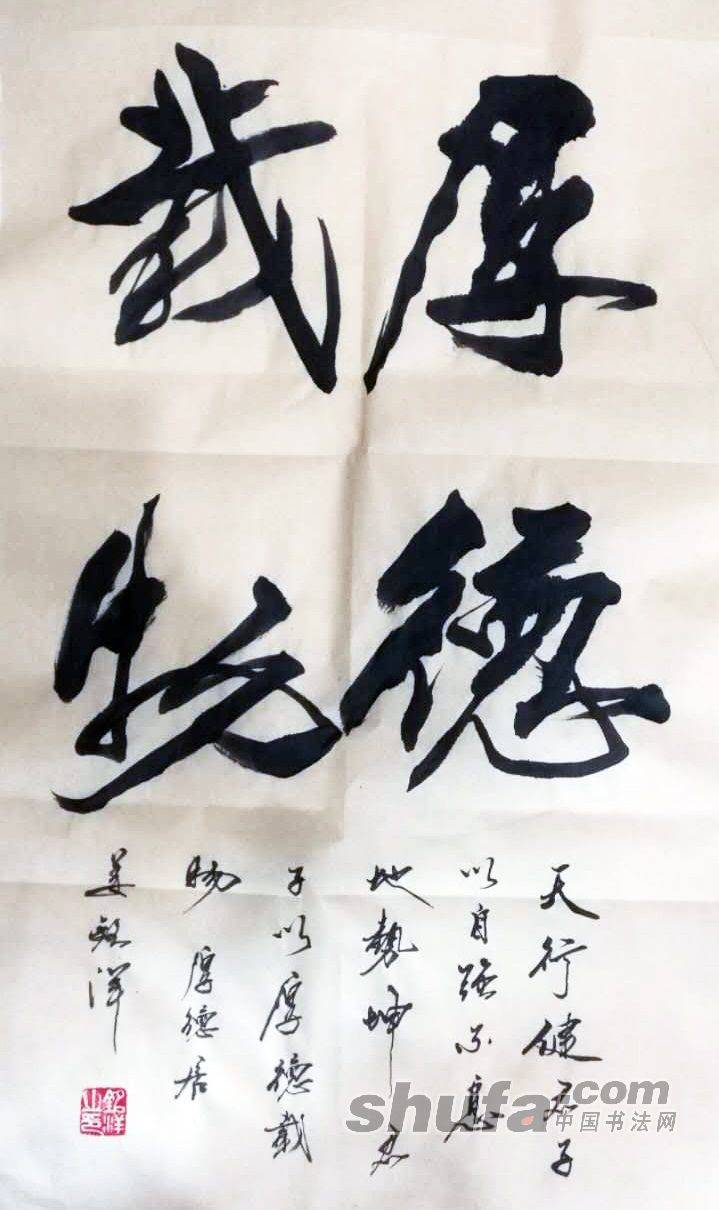 厚德
载物
天行健君子
以自强不息
地勢坤君
子以厚德載
物 厚德居
姜钦洋
shufa.com
中国书法网